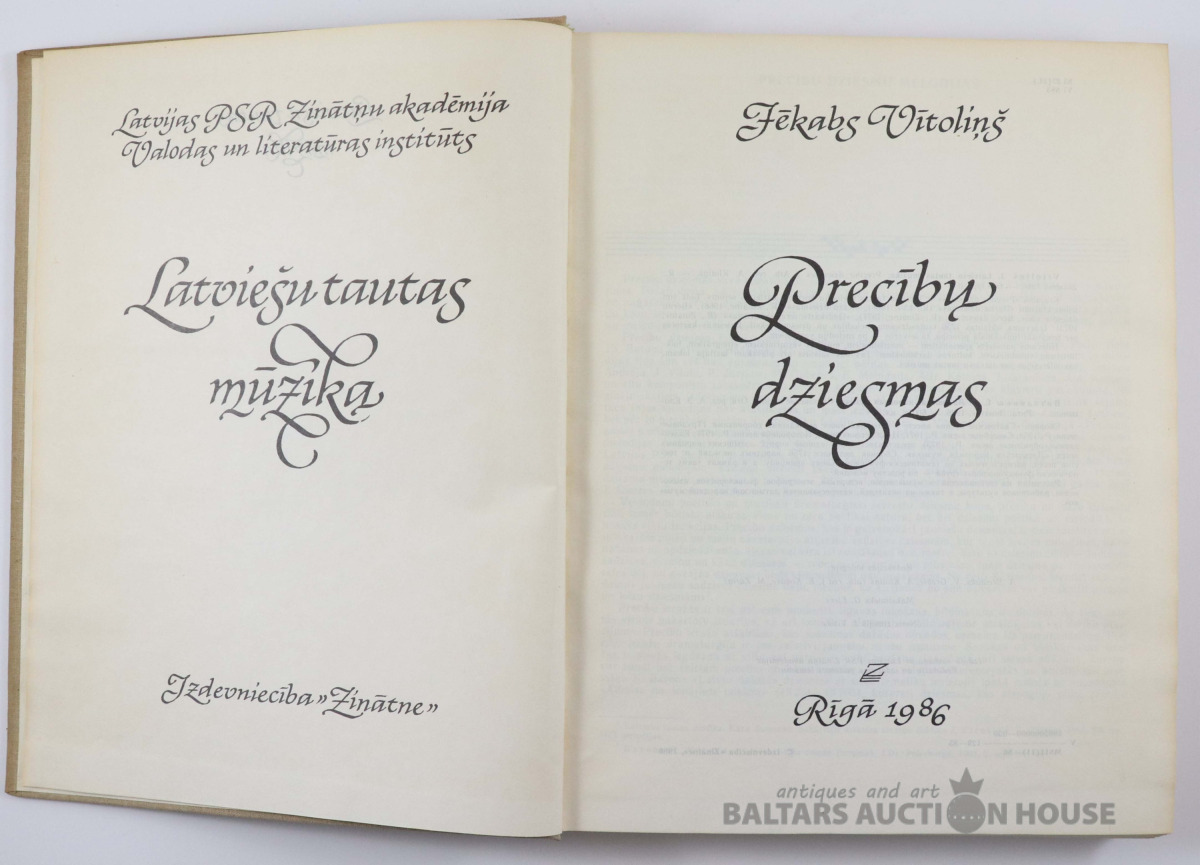 Latvijas PSR Zinātņu akadēmija
Valodas un literatūras institūts
Latviešu tautas
mūzika
Izdevniecība „Zinātne”
Jēkabs Vītoliņš
Precību
dziesmas
Rīgā 1986
antiques and art
BALTARS AUCTION HOUSE